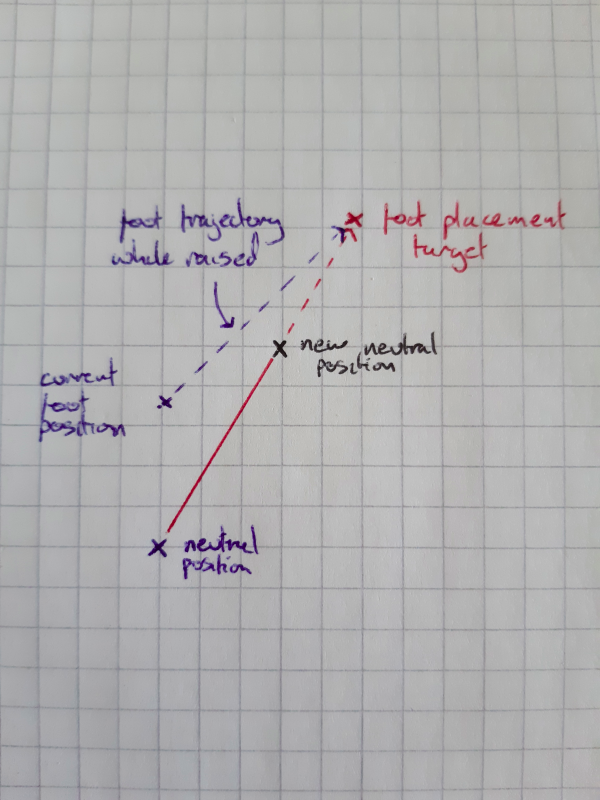 foot trajectory
while raised
foot placement
target
new neutral
position
current
foot
position
neutral
position